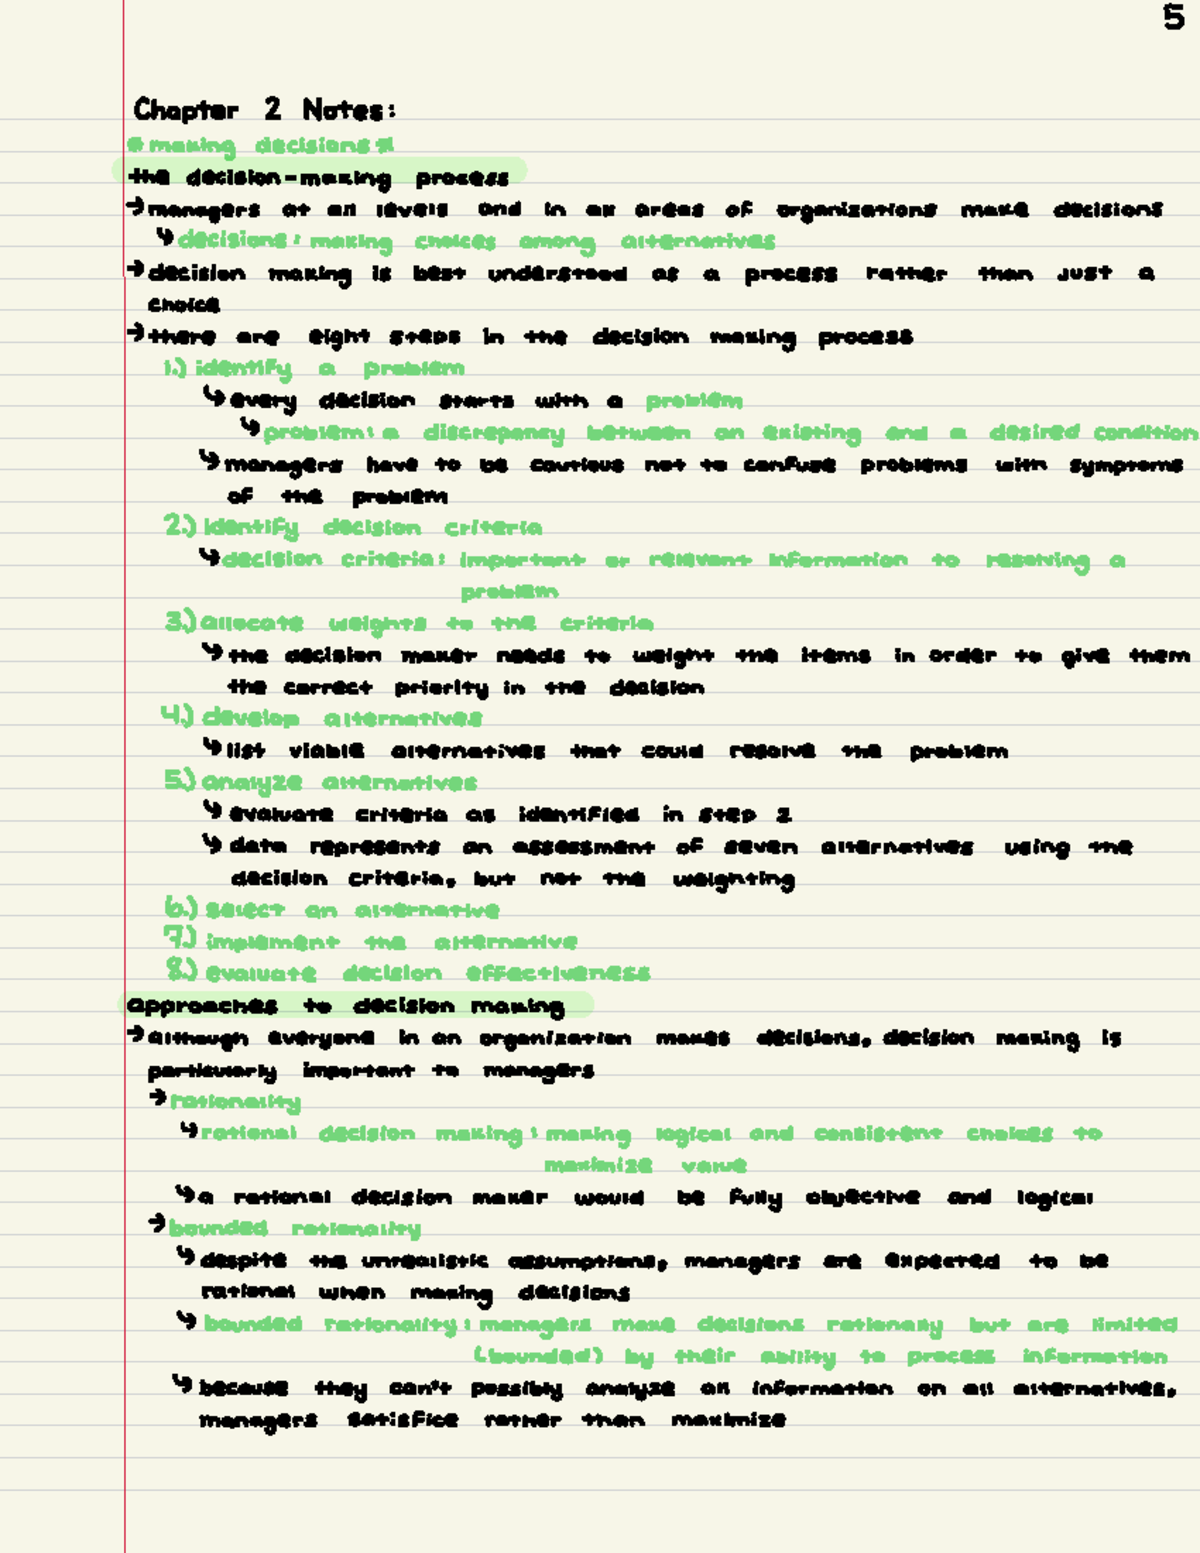 5
Chapter 2 Notes:
* making decisions *
the decision-making process
→ managers at all levels and in all areas of organizations make decisions
↳ decisions: making choices among alternatives
→ decision making is best understood as a process rather than just a
choice
→ there are eight steps in the decision making process
1.) identify a problem
↳ every decision starts with a problem
↳ problem: a discrepancy between an existing and a desired condition
↳ managers have to be cautious not to confuse problems with symptoms
of the problem
2.) identify decision criteria
↳ decision criteria: important or relevant information to resolving a
problem
3.) allocate weights to the criteria
↳ the decision maker needs to weight the items in order to give them
the correct priority in the decision
4.) develop alternatives
↳ list viable alternatives that could resolve the problem
5.) analyze alternatives
↳ evaluate criteria as identified in step 2
↳ data represents an assessment of seven alternatives using the
decision criteria, but not the weighting
6.) select an alternative
7.) implement the alternative
8.) evaluate decision effectiveness
approaches to decision making
→ although everyone in an organization makes decisions, decision making is
particularly important to managers
→ rationality
↳ rational decision making: making logical and consistent choices to
maximize value
↳ a rational decision maker would be fully objective and logical
→ bounded rationality
↳ despite the unrealistic assumptions, managers are expected to be
rational when making decisions
↳ bounded rationality: managers make decisions rationally but are limited
(bounded) by their ability to process information
↳ because they can't possibly analyze all information on all alternatives,
managers satisfice rather than maximize